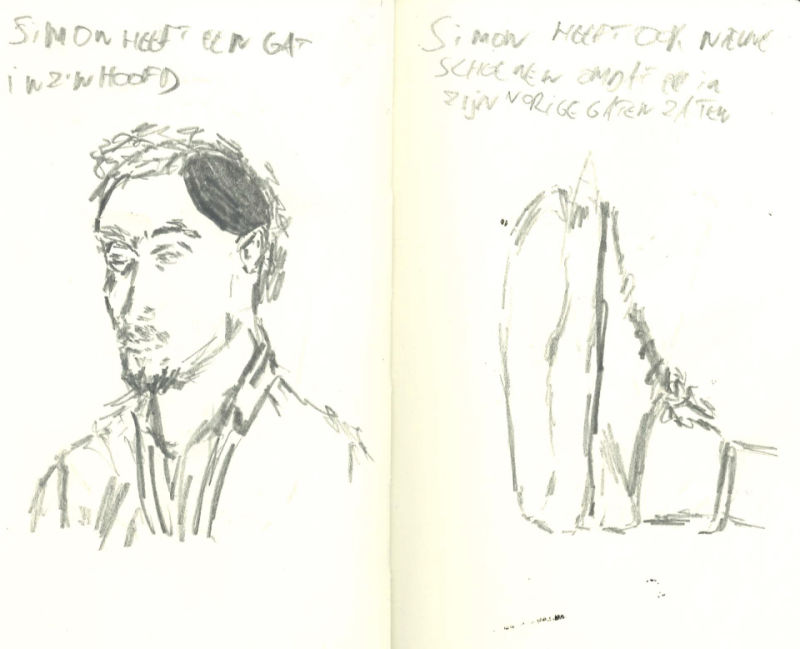 SIMON HEEFT EEN GAT
IN ZIJN HOOFD
SIMON HEEFT OOK NIEUWE
SCHOENEN OMDAT ER in
zijn VORIGE GATEN ZATEN